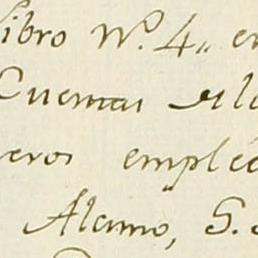 libro Nº. 4,, en
Cuentas de l
eros emplea
Alamo, S. S